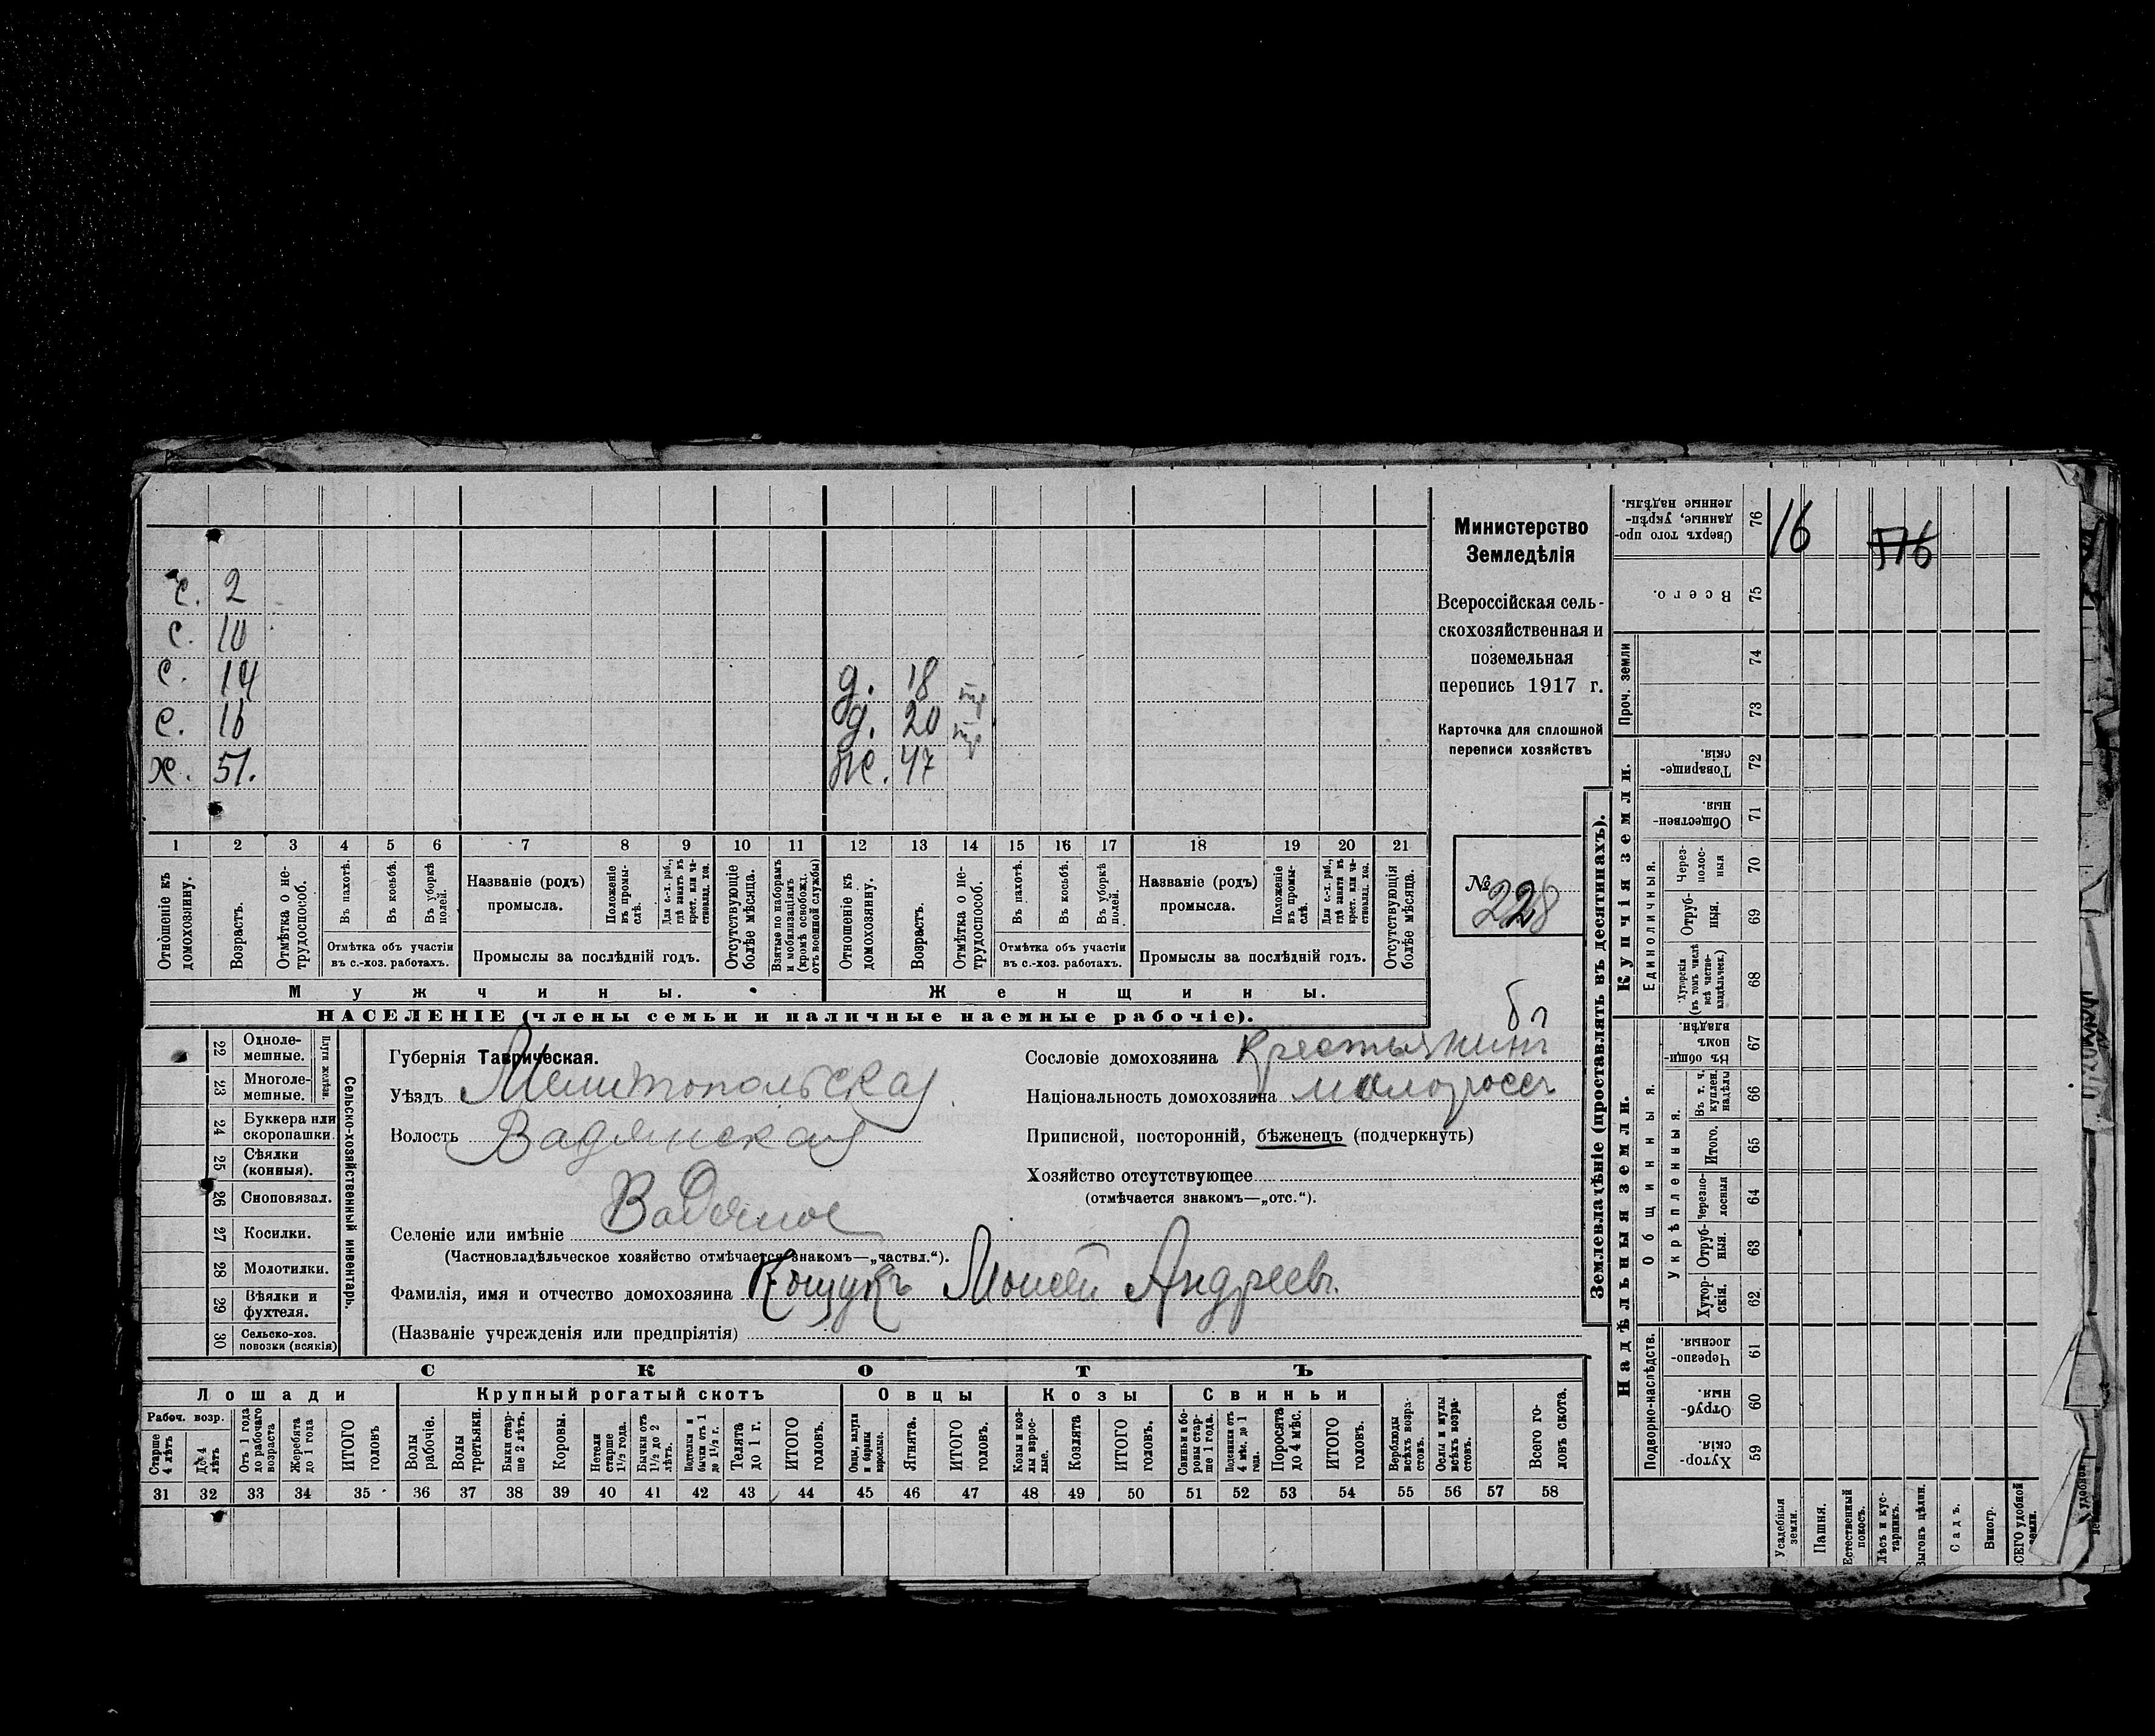 с. 2
с. 10
с. 14 д. 18
с. 16 д. 20
х. 51. ж. 47
1 2 3 4 5 6 7 8 9 10 11 12 13 14 15 16 17 18 19 20 21
Отношеніе къ домохозяину.
Возрастъ.
Отмѣтка о не-трудоспособ.
Въ пахотѣ.
Въ косьбѣ.
Въ уборкѣ полей.
Отмѣтка объ участіи въ с.-хоз. работахъ.
Названіе (родъ) промысла.
Положеніе въ промы-слѣ.
Для с.-х. раб., гдѣ занятъ въ крест. или ча-стновлад. хоз.
Промыслы за послѣдній годъ.
Отсутствующіе болѣе мѣсяца.
Взятые по наборамъ и мобилизаціямъ (кромѣ освобожд. отъ военной службы)
Отношеніе къ домохозяину.
Возрастъ.
Отмѣтка о не-трудоспособ.
Въ пахотѣ.
Въ косьбѣ.
Въ уборкѣ полей.
Отмѣтка объ участіи въ с.-хоз. работахъ.
Названіе (родъ) промысла.
Положеніе въ промы-слѣ.
Для с.-х. раб., гдѣ занята въ крест. или ча-стновлад. хоз.
Промыслы за послѣдній годъ.
Отсутствующія болѣе мѣсяца.
Мужчины. Женщины.
НАСЕЛЕНІЕ (члены семьи и наличные наемные рабочіе).
Министерство
Земледѣлія
Всероссійская сель-
скохозяйственная и
поземельная
перепись 1917 г.
Карточка для сплошной
переписи хозяйствъ
№ 228
22 Одноле-мешные.
23 Многоле-мешные.
Плуги желѣзн.
24 Буккера или скоропашки.
25 Сѣялки (конныя).
26 Сноповязал.
27 Косилки.
28 Молотилки.
29 Вѣялки и фухтеля.
30 Сельско-хоз. повозки (всякія)
Сельско-хозяйственный инвентарь.
Губернія Таврическая.
Уѣздъ Мелитопольская
Волость Вадянская
Селеніе или имѣніе Водяное
(Частновладѣльческое хозяйство отмѣчается знакомъ—„частвл.“).
Фамилія, имя и отчество домохозяина Кощукъ Моисей Андреевъ
(Названіе учрежденія или предпріятія)
бл
Сословіе домохозяина Крестьянинъ
Національность домохозяина малороссъ
Приписной, посторонній, бѣженецъ (подчеркнуть)
Хозяйство отсутствующее
(отмѣчается знакомъ—„отс.“).
СКОТЪ
Лошади Крупный рогатый скотъ Овцы Козы Свиньи
Рабоч. возр.
Старше 4 лѣтъ
До 4 лѣтъ
Отъ 1 года до рабочаго возраста
Жеребята до 1 года
ИТОГО головъ
Волы рабочіе.
Волы третьяки.
Быки стар-ше 2 лѣтъ.
Коровы.
Нетели старше 1½ года.
Бычки отъ 1½ до 2 лѣтъ.
Подтелки и бычки отъ 1 до 1½ г.
Телята до 1 г.
ИТОГО головъ.
Овцы, валухи и бараны взрослые.
Ягнята.
ИТОГО головъ.
Козы и коз-лы взрос-лые.
Козлята
ИТОГО головъ.
Свиньи и бо-ровы стар-ше 1 года.
Подсвинки отъ 4 мѣс. до 1 года.
Поросята до 4 мѣс.
ИТОГО головъ.
Верблюды всѣхъ возра-стовъ.
Ослы и мулы всѣхъ возра-стовъ.
Всего го-ловъ скота.
31 32 33 34 35 36 37 38 39 40 41 42 43 44 45 46 47 48 49 50 51 52 53 54 55 56 57 58
Землевладѣніе (проставлять въ десятинахъ).
Сверхъ того про-данные, укрѣп-ленные надѣлы. 76 16 576
Всего. 75
Проч. земли
74
73
Купчія земли.
Товарище-скія. 72
Обществен-ныя. 71
Единоличныя.
Через-полос-ныя 70
Отруб-ныя. 69
Хуторскія (въ томъ числѣ всѣ частно-владѣльческ.) 68
Надѣльныя земли.
Общинныя.
Въ общин-номъ владѣн. 67
Укрѣпленныя.
Въ т. ч. куплен. надѣлы 66
Итого. 65
Черезпо-лосныя 64
Отруб-ныя. 63
Хутор-скія. 62
Подворно-наслѣдств.
Черезпо-лосныя 61
Отруб-ныя. 60
Хутор-скія. 59
Усадебныя земли.
Пашня.
Естественный покосъ.
Лѣсъ и кус-тарникъ.
Выгонъ цѣлин.
Садъ.
Виногр.
СЕГО удобной земли.
удобной